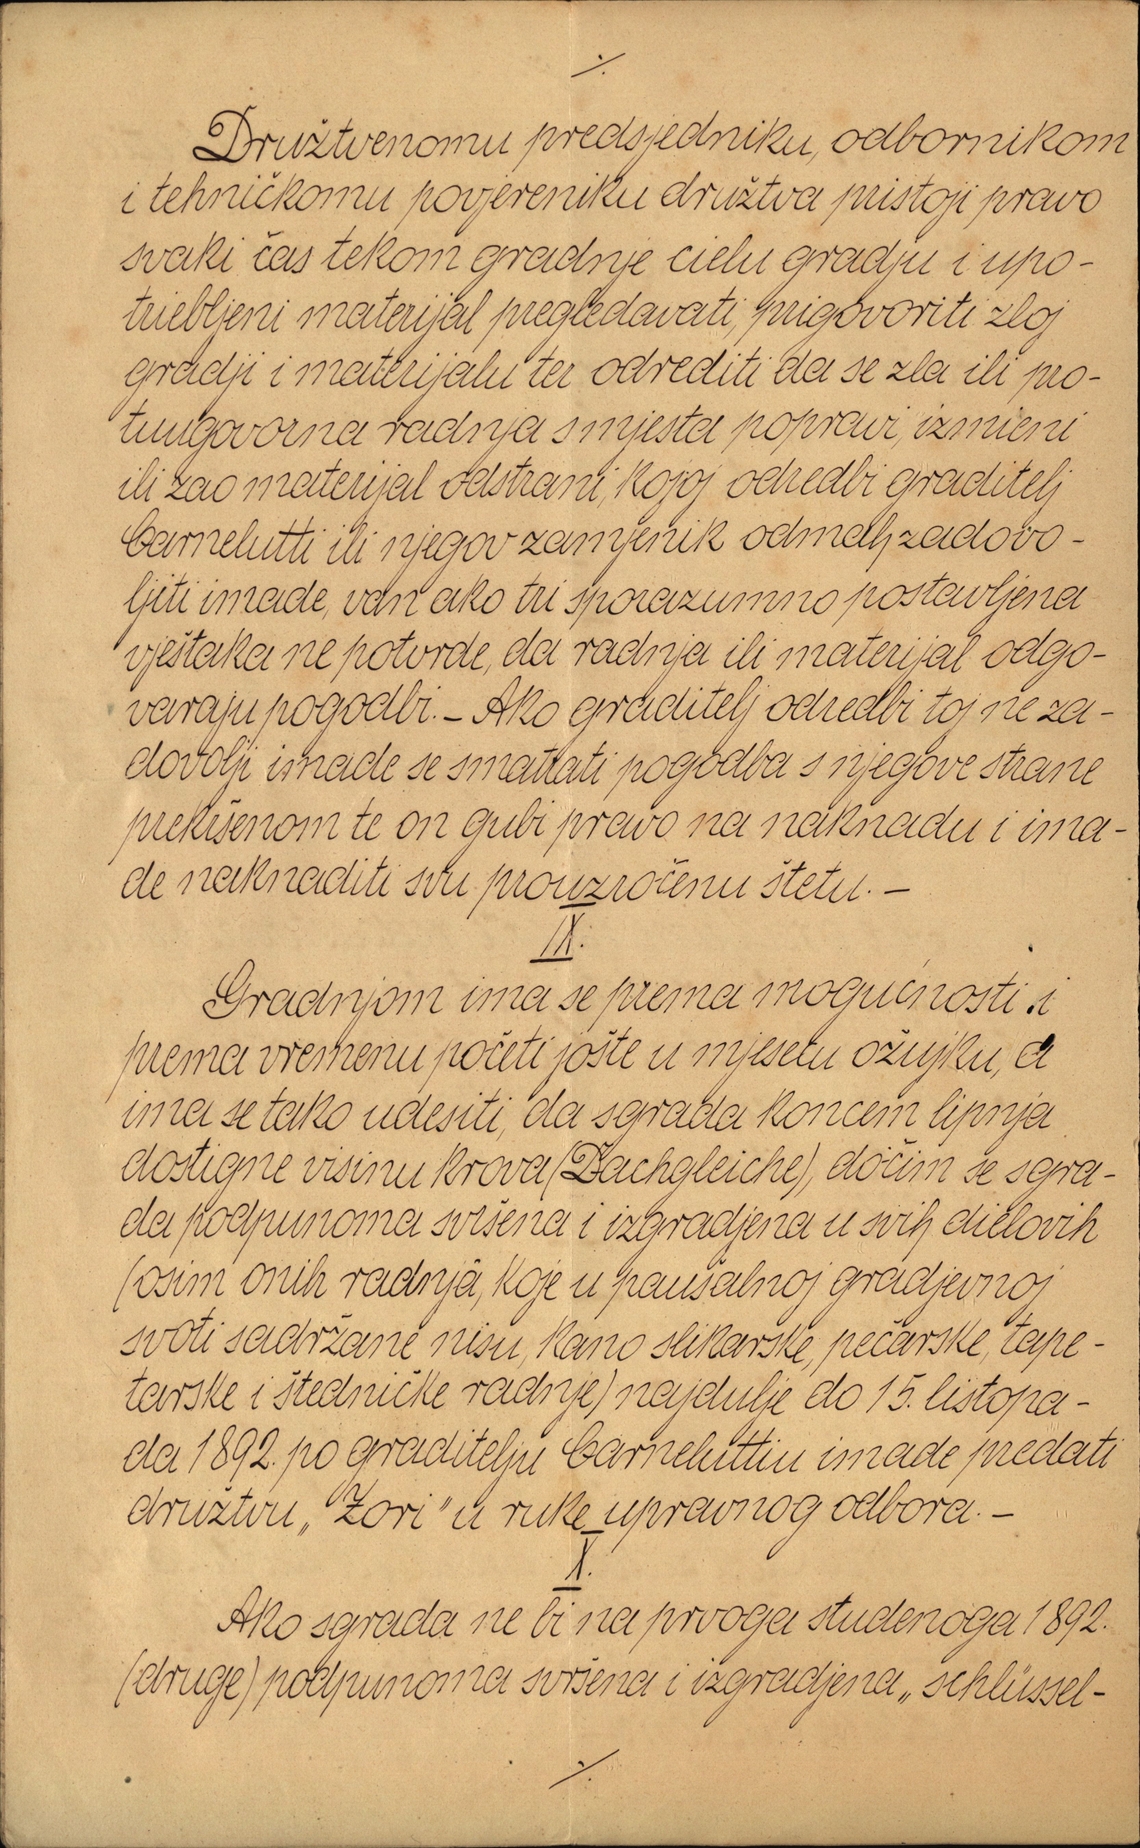 ./.
Družtvenomu predsjedniku, odbornikom
i tehničkomu povjereniku družtva pristoji pravo
svaki čas tekom gradnje cielu gradju i upo-
triebljeni materijal pregledavati, prigovoriti zloj
gradji i materijalu ter odrediti da se zla ili pro-
tuugovorna radnja smjesta popravi, izmieni
ili zao materijal odstrani, kojoj odredbi graditelj
Carnelutti ili njegov zamjenik odmah zadovo-
ljiti imade, van ako tri sporazumno postavljena
vještaka ne potvrde, da radnja ili materijal odgo-
varaju pogodbi. – Ako graditelj odredbi toj ne za-
dovolji imade se smatrati pogodba s njegove strane
prekršenom te on gubi pravo na naknadu i ima-
de naknaditi svu prouzročenu štetu. –
IX.
Gradnjom ima se prema mogućnosti i
prema vremenu početi jošte u mjesecu ožujku, a
ima se tako udesiti, da sgrada koncem lipnja
dostigne visinu krova (Dachgleiche), dočim se sgra-
da podpunoma svršena i izgradjena u svih dielovih
(osim onih radnjâ, koje u paušalnoj gradjevnoj
svoti sadržane nisu, kano slikarske, pečarske, tape-
tarske i štedničke radnje) najdulje do 15. listopa-
da 1892. po graditelju Carneluttiu imade predati
družtvu „Zori" u ruke upravnog odbora. –
X.
Ako sgrada ne bi na prvoga studenoga 1892.
(druge) podpunoma svršena i izgradjena „schlüssel-
./.